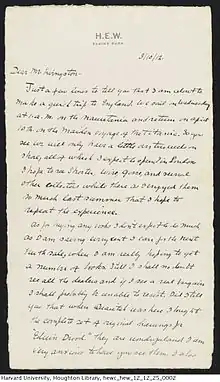 H.E.W.
ELKINS PARK.
3/10/12
Dear Mr. Livingston-
Just a few lines to tell you that I am about to
make a quick trip to England. We sail on Wednesday
at 1 a.m. on the Mauretania and return on April
10th on the Maiden voyage of the Titanic. So you
see we will only have a little over two weeks on
shore, all of which I expect to spend in London
I hope to see Shorter, Wise, Gosse and several
other collectors while there as I enjoyed them
so much last summer that I hope to
repeat the experience.
As for buying any books I don't expect to do much
as I am saving every cent I can for the next
Huth sale, when I am really hoping to get
a number of books. Still I shall no doubt
see all the dealers and if I see a real bargain
I shall probably be unable to resist. Did I tell
you that when Quaritch was here I bought
the complete set of original drawings for
they are wonderful and I am
very anxious to have you see them. I also
Harvard University, Houghton Library, hewc_hew_12_12_25_0002